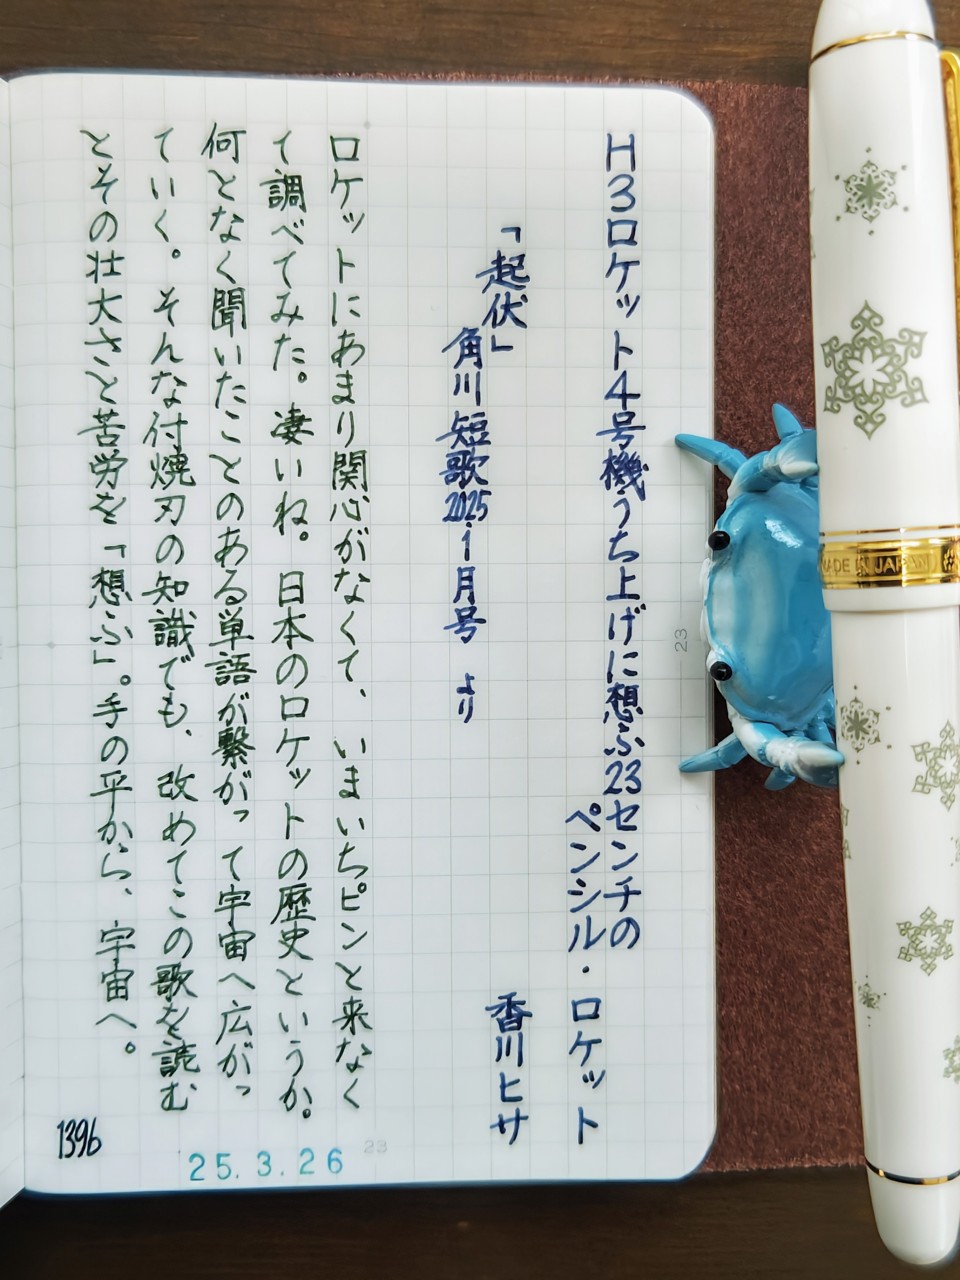 H3ロケット4号機うち上げに想ふ23センチの
ペンシル・ロケット
香川ヒサ
「起伏」
角川短歌2025.1月号 より
ロケットにあまり関心がなくて、いまいちピンと来なく
て調べてみた。凄いね。日本のロケットの歴史というか。
何となく聞いたことのある単語が繋がって宇宙へ広がっ
ていく。そんな付焼刃の知識でも、改めてこの歌を読む
とその壮大さと苦労を「想ふ」。手の平から、宇宙へ。
1396
25.3.26
23
23
MADE IN JAPAN